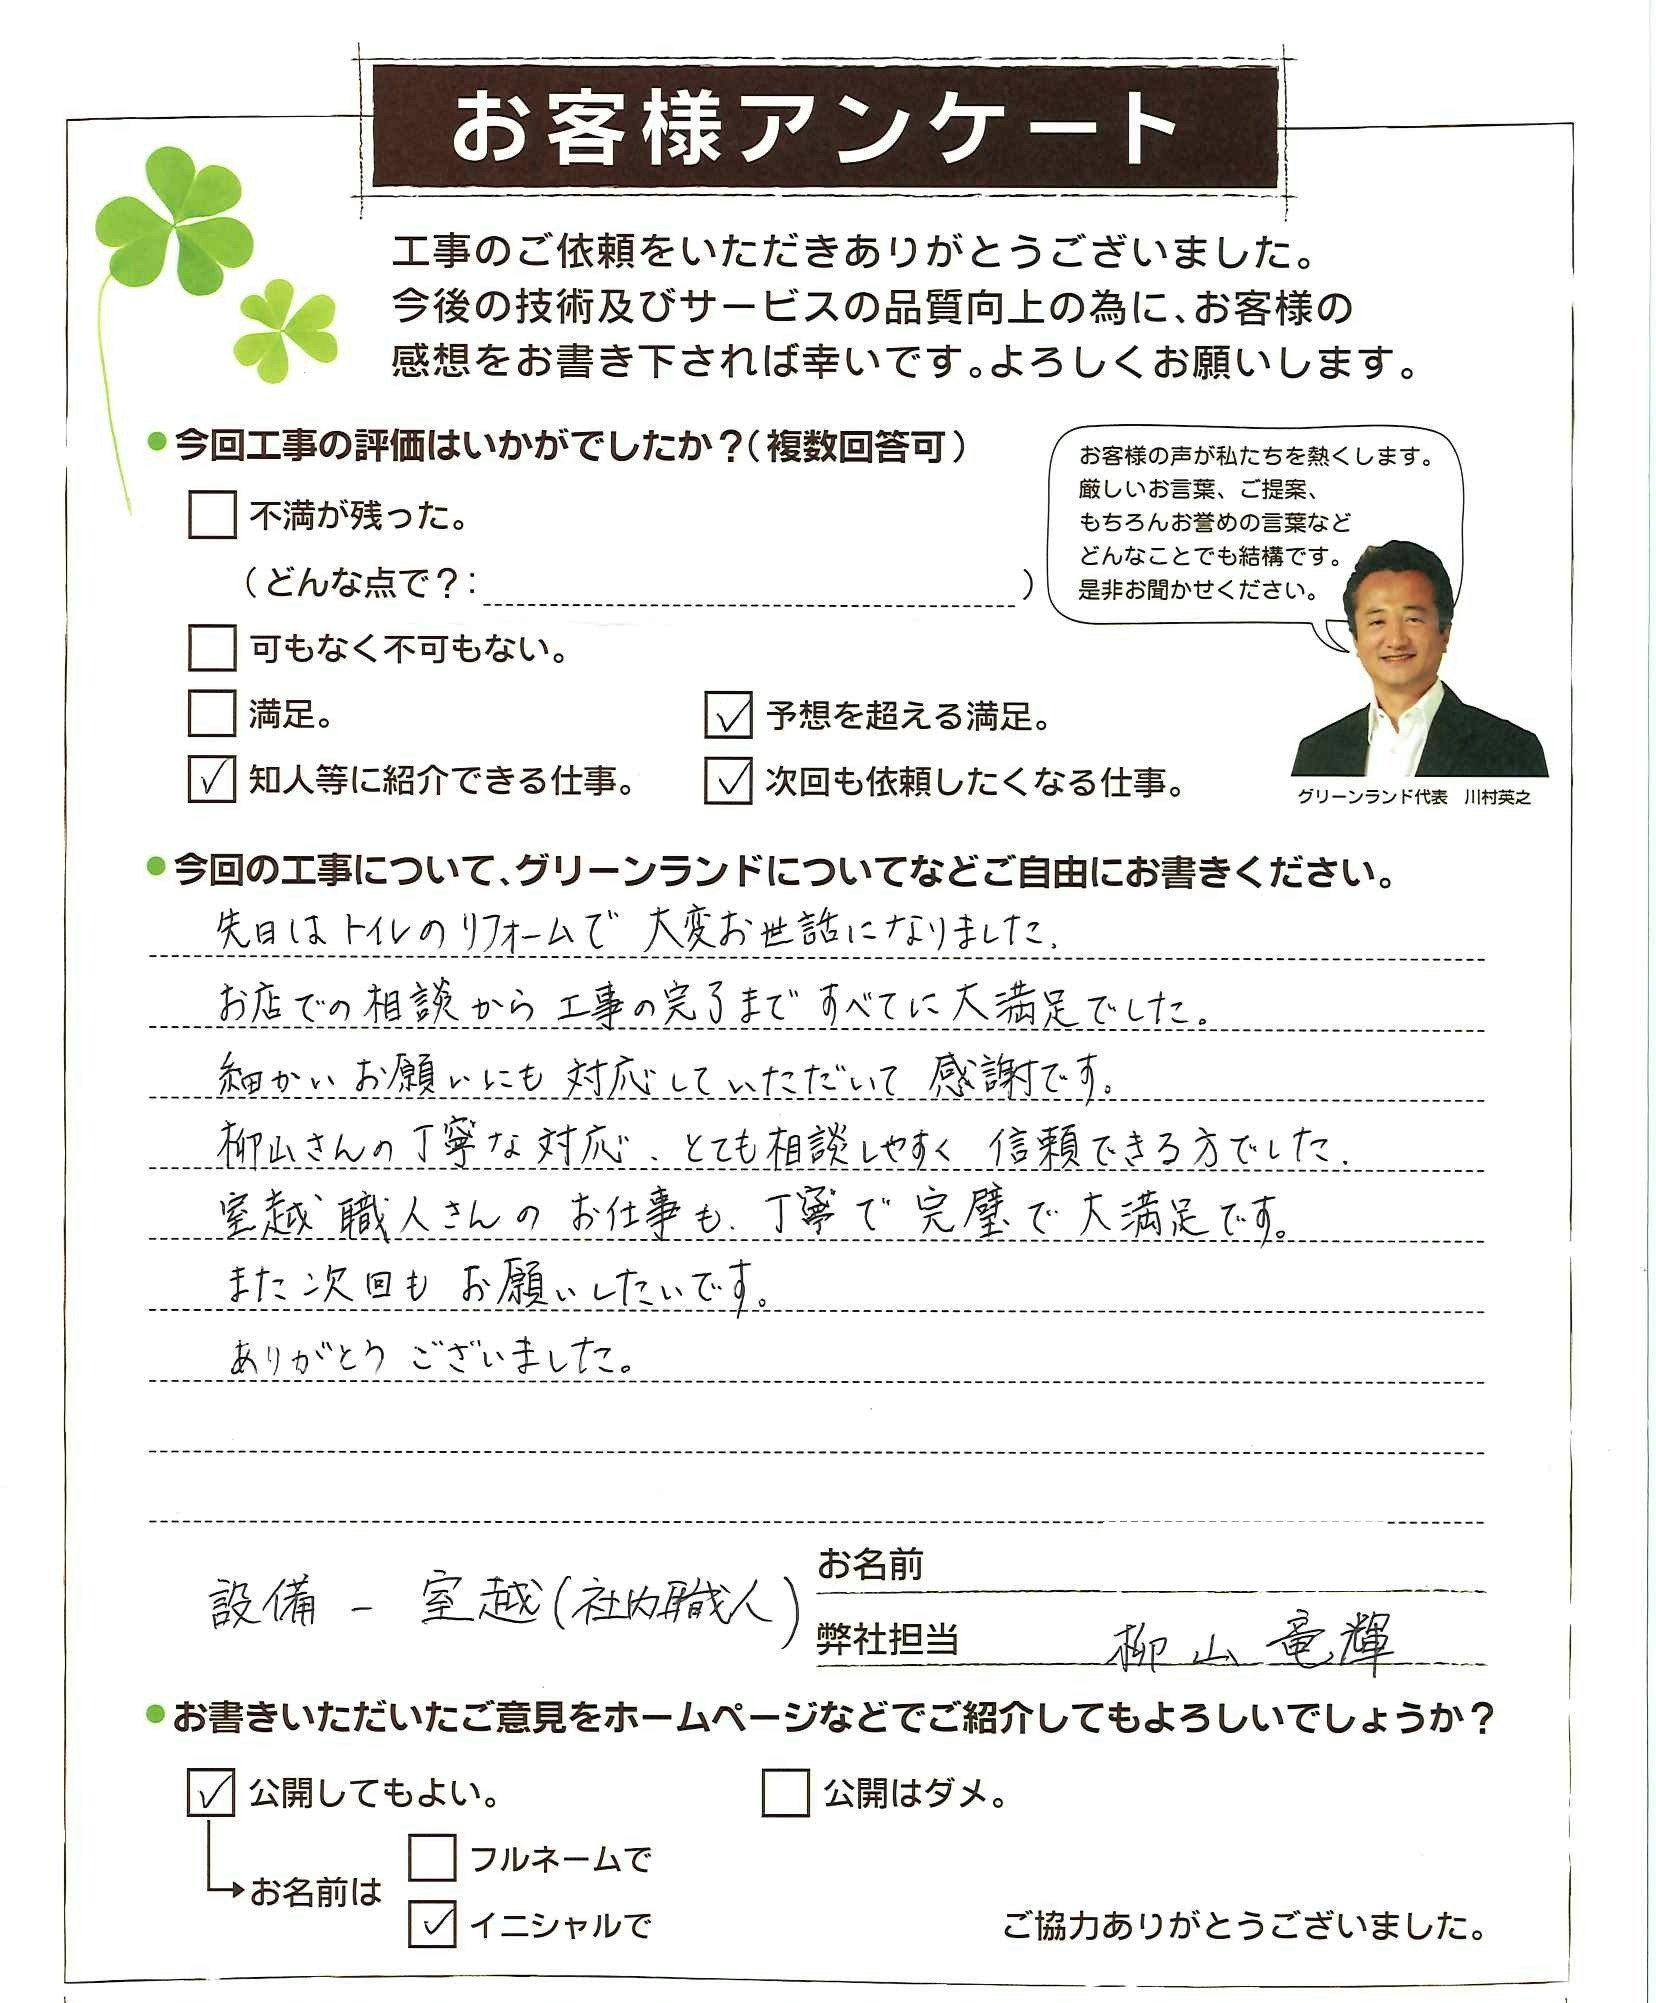 お客様アンケート
工事のご依頼をいただきありがとうございました。
今後の技術及びサービスの品質向上の為に、お客様の
感想をお書き下されば幸いです。よろしくお願いします。
●今回工事の評価はいかがでしたか？（複数回答可）
不満が残った。
（どんな点で？：　）
可もなく不可もない。
満足。
✓ 予想を超える満足。
✓ 知人等に紹介できる仕事。
✓ 次回も依頼したくなる仕事。
お客様の声が私たちを熱くします。
厳しいお言葉、ご提案、
もちろんお誉めの言葉など
どんなことでも結構です。
是非お聞かせください。
グリーンランド代表　川村英之
●今回の工事について、グリーンランドについてなどご自由にお書きください。
先日はトイレのリフォームで 大変お世話になりました.
お店での相談から 工事の完了まで すべてに大満足でした。
細かいお願いにも 対応していただいて 感謝です。
柳山さんの丁寧な対応、とても相談しやすく 信頼できる方でした.
室越職人さんの お仕事も、丁寧で 完璧で 大満足です。
また次回も お願いしたいです。
ありがとう ございました。
設備 - 室越(社内職人)
お名前
弊社担当　柳山 竜輝
●お書きいただいたご意見をホームページなどでご紹介してもよろしいでしょうか？
✓ 公開してもよい。
公開はダメ。
お名前は
フルネームで
✓ イニシャルで
ご協力ありがとうございました。